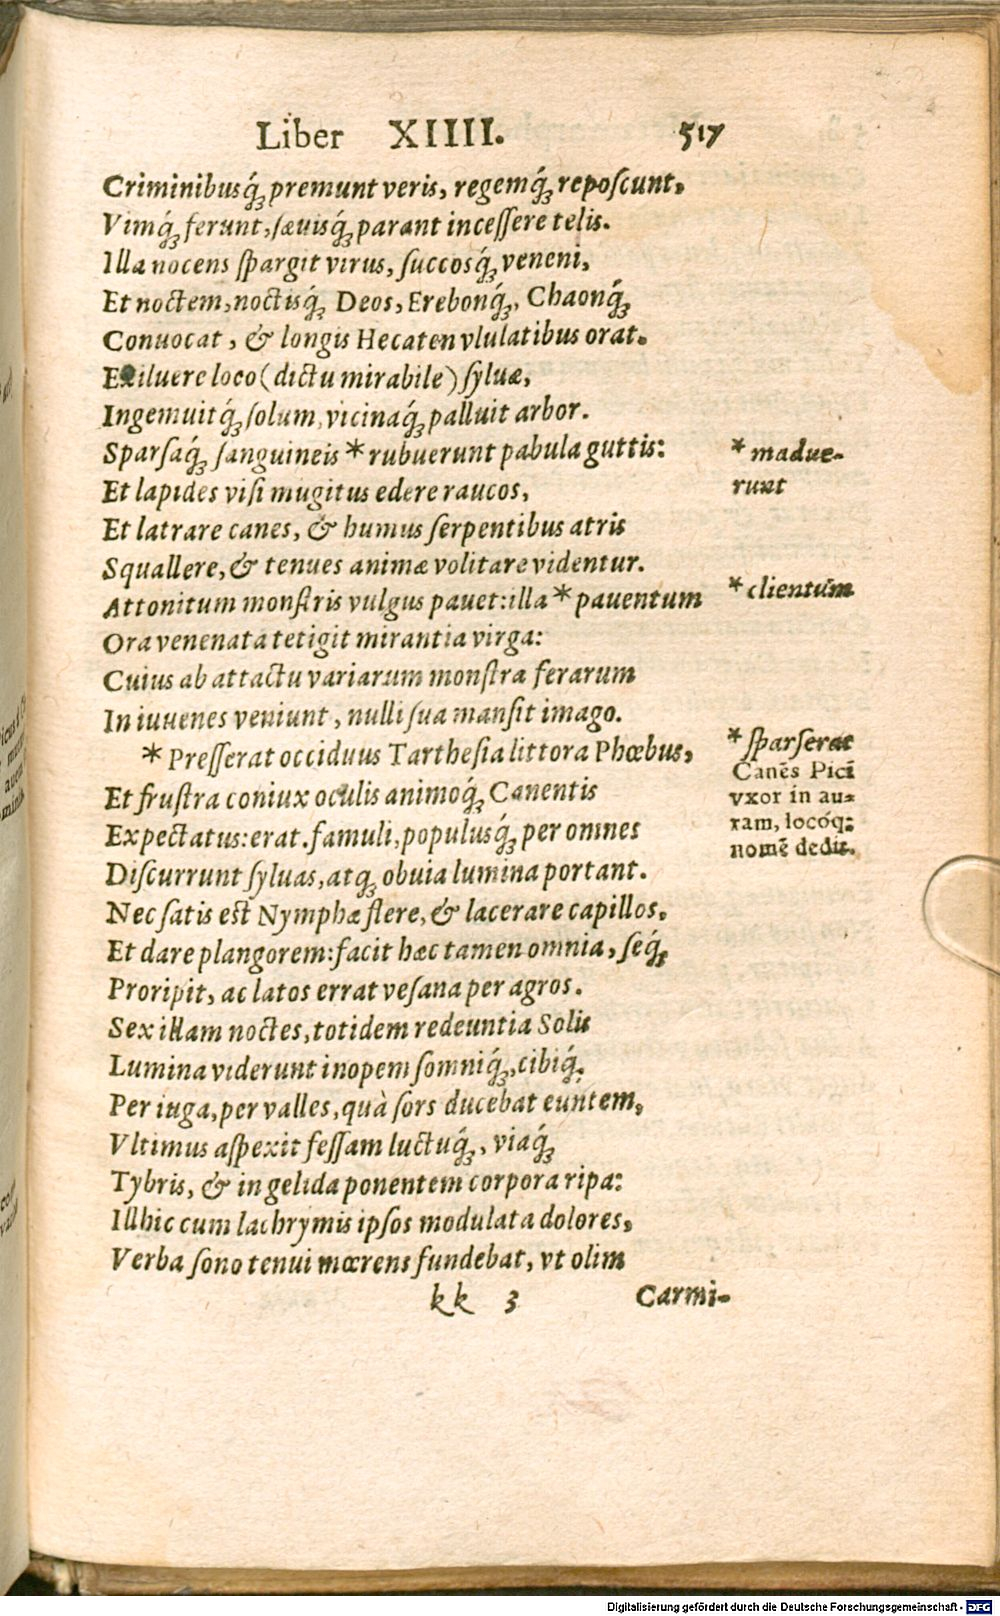 Liber XIIII. 517
Criminibusq́ꝫ premunt veris, regemq́ꝫ reposcunt,
Vimq́ꝫ ferunt, sæuisq́ꝫ parant incessere telis.
Illa nocens spargit virus, succosq́ꝫ veneni,
Et noctem, noctisq́ꝫ Deos, Erebonq́ꝫ, Chaonq́ꝫ
Conuocat, & longis Hecaten vlulatibus orat.
Exiluere loco (dictu mirabile) syluæ,
Ingemuitq́ꝫ solum, vicinaq́ꝫ palluit arbor.
Sparsaq́ꝫ sanguineis * rubuerunt pabula guttis:
* madue-
runt
Et lapides visi mugitus edere raucos,
Et latrare canes, & humus serpentibus atris
Squallere, & tenues animæ volitare videntur.
Attonitum monstris vulgus pauet: illa * pauentum
* clientum
Ora venenata tetigit mirantia virga:
Cuius ab attactu variarum monstra ferarum
In iuuenes veniunt, nulli sua mansit imago.
* Presserat occiduus Tarthesia littora Phœbus,
* sparserat
Canēs Pici
vxor in au-
ram, locóq;
nomē dedit.
Et frustra coniux oculis animoq́ꝫ Canentis
Expectatus: erat. famuli, populusq́ꝫ per omnes
Discurrunt syluas, atqꝫ obuia lumina portant.
Nec satis est Nymphæ flere, & lacerare capillos,
Et dare plangorem: facit hæc tamen omnia, seq́ꝫ
Proripit, ac latos errat vesana per agros.
Sex illam noctes, totidem redeuntia Solis
Lumina viderunt inopem somniq́ꝫ, cibiq́ꝫ.
Per iuga, per valles, quà sors ducebat euntem,
Vltimus aspexit fessam luctuq́ꝫ, viaq́ꝫ
Tybris, & in gelida ponentem corpora ripa:
Illhic cum lachrymis ipsos modulata dolores,
Verba sono tenui mœrens fundebat, vt olim
kk 3 Carmi-
Digitalisierung gefördert durch die Deutsche Forschungsgemeinschaft - DFG